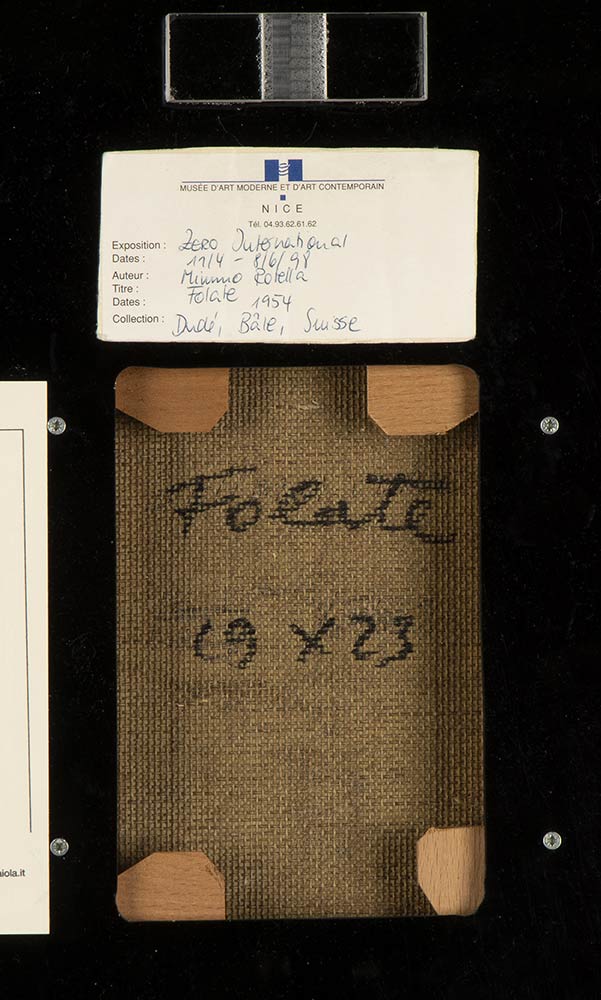 MUSÉE D'ART MODERNE ET D'ART CONTEMPORAIN
NICE
Tél. 04.93.62.61.62
Exposition : ZERO International
Dates : 11/4 - 8/6/98
Auteur : Mimmo Rotella
Titre : Folate
Dates : 1954
Collection : Dudé, Bâle, Suisse
FolaTe
19 x 23
iola.it